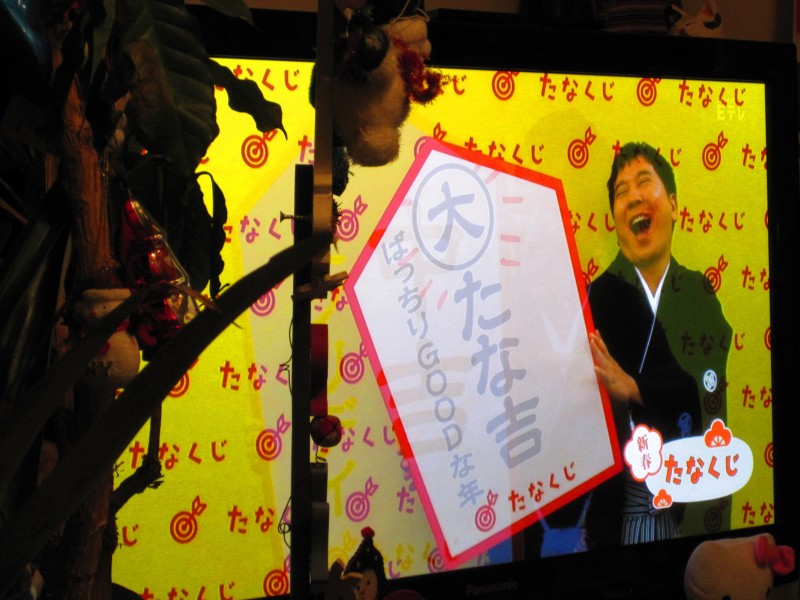 たなくじ
たなくじ
たなくじ
Eテレ
たなくじ
たなくじ
大
たな吉
ばっちりGOODな年
たなくじ
新春
たなくじ
Panasonic